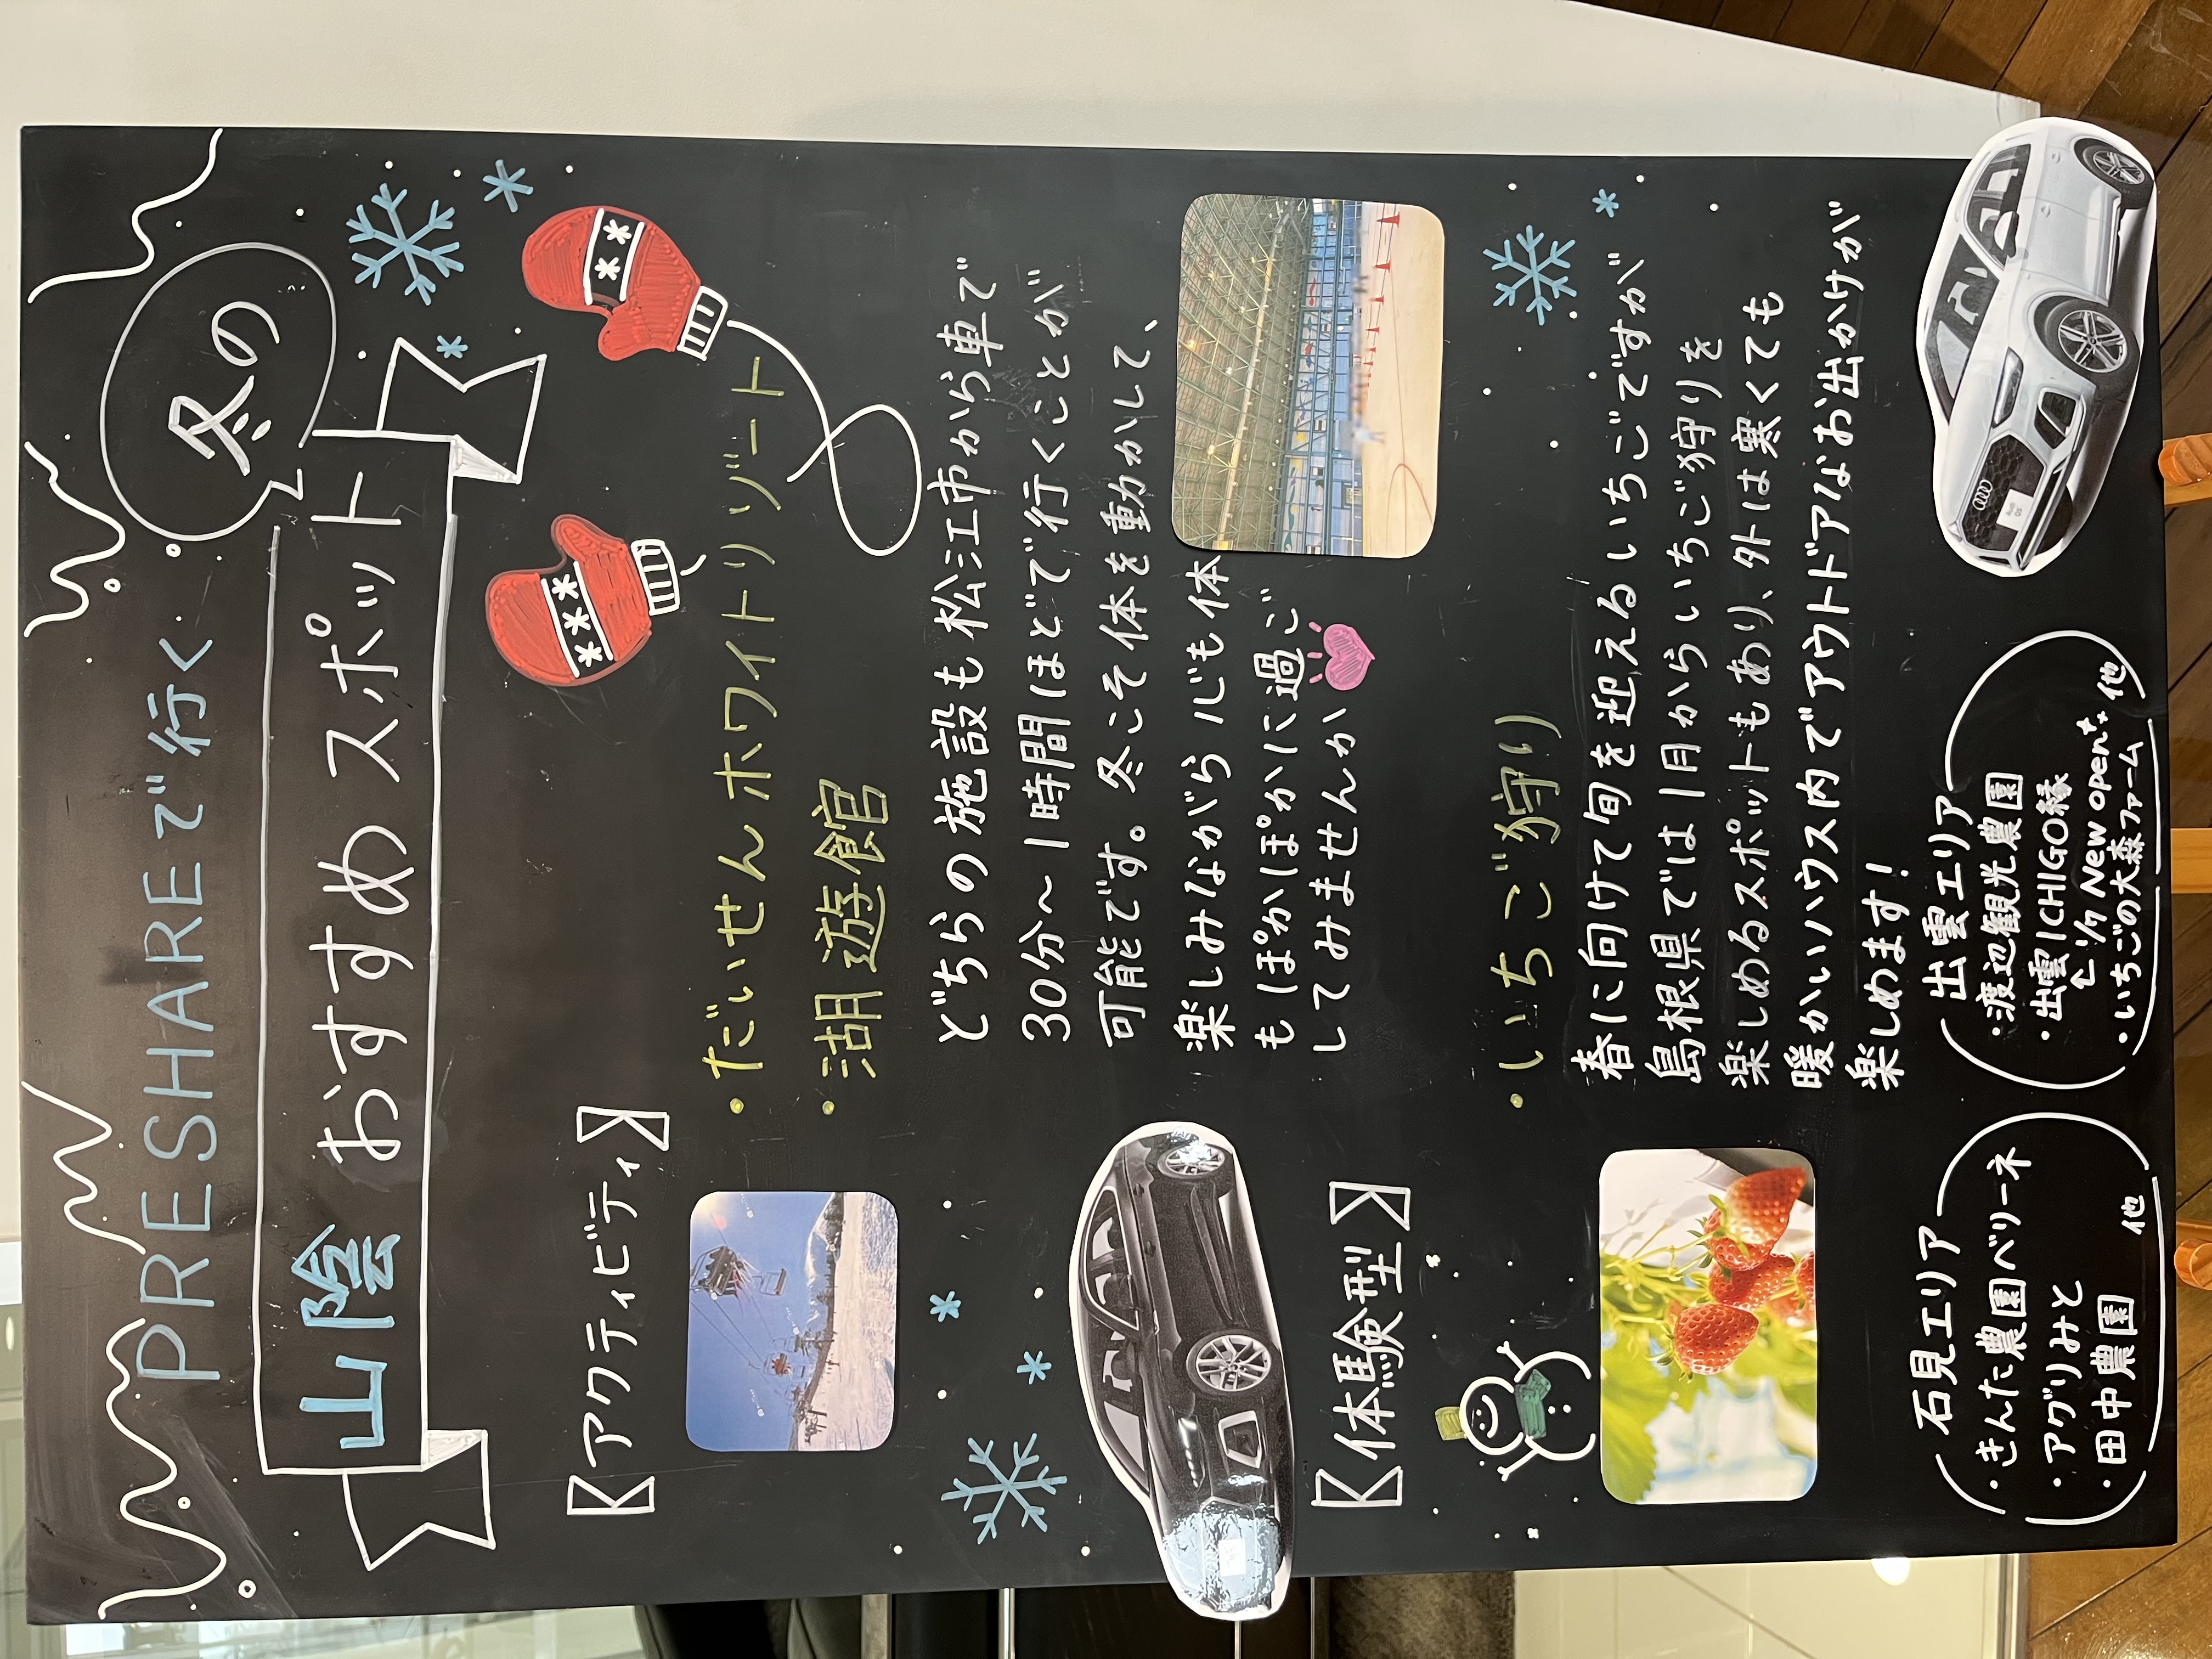 PRESHAREで行く
冬の
山陰 おすすめ スポット
【アクティビティ】
・だいせんホワイトリゾート
・湖遊館
どちらの施設も松江市から車で
30分〜1時間ほどで行くことが
可能です。冬こそ体を動かして、
楽しみながら心も体
もぽかぽかに過ご
してみませんか
【体験型】
・いちご狩り
春に向けて旬を迎えるいちごですが
島根県では1月からいちご狩りを
楽しめるスポットもあり、外は寒くても
暖かいハウス内でアウトドアなお出かけが
楽しめます!
石見エリア
・きんた農園ベリーネ
・アグリみと
・田中農園 他
出雲エリア
・渡辺観光農園
・出雲ICHIGO縁
New open
・いちごの大森ファーム 他